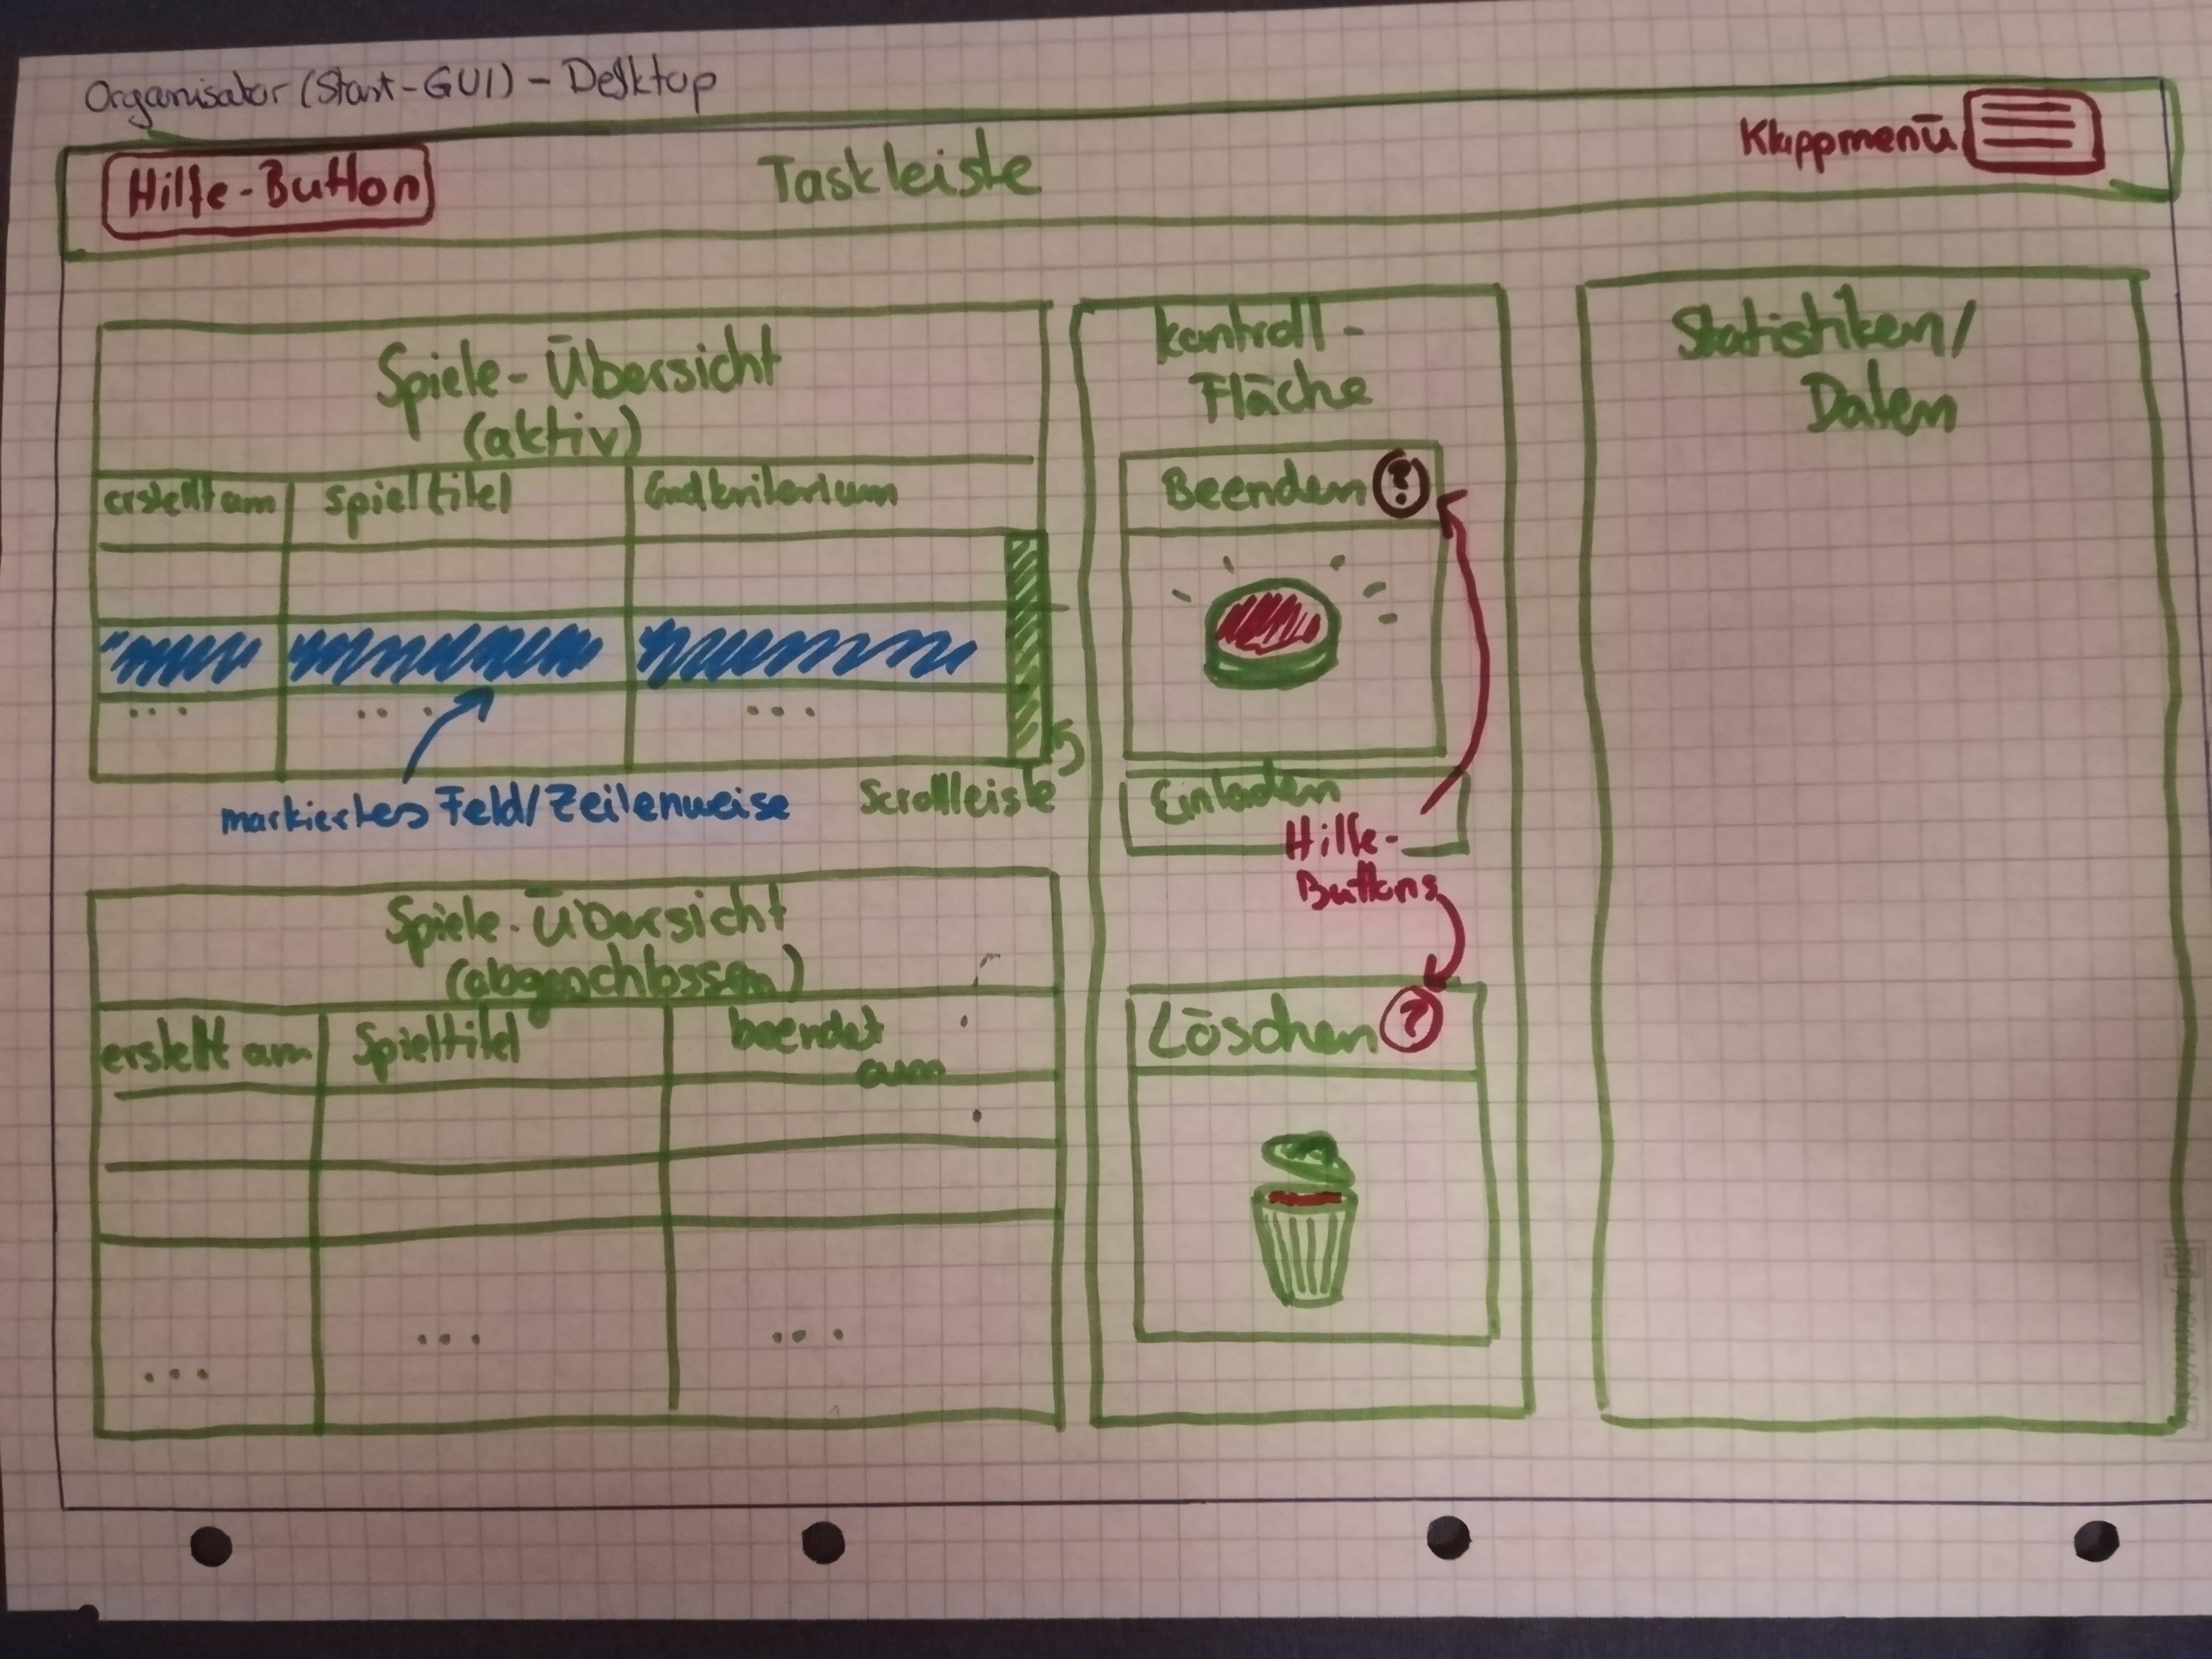 Organisator (Start-GUI) - Desktop
Hilfe-Button
Taskleiste
Klappmenü
Spiele-Übersicht
(aktiv)
erstellt am
Spieltitel
Endkriterium
...
...
...
markiertes Feld/Zeilenweise
Scrollleiste
Spiele-Übersicht
(abgeschlossen)
erstellt am
Spieltitel
beendet
am
...
...
...
Kontroll-
Fläche
Beenden ?
Einladen
Hilfe-
Buttons
Löschen ?
Statistiken/
Daten